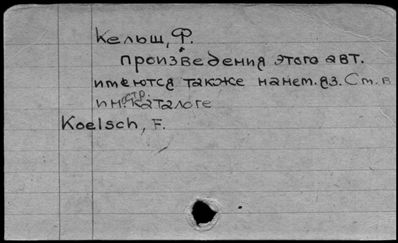 Кельщ, Ф.
произведения этого авт.
имеются также на нем. яз. См. в
иностр. каталоге
Koelsch, F.